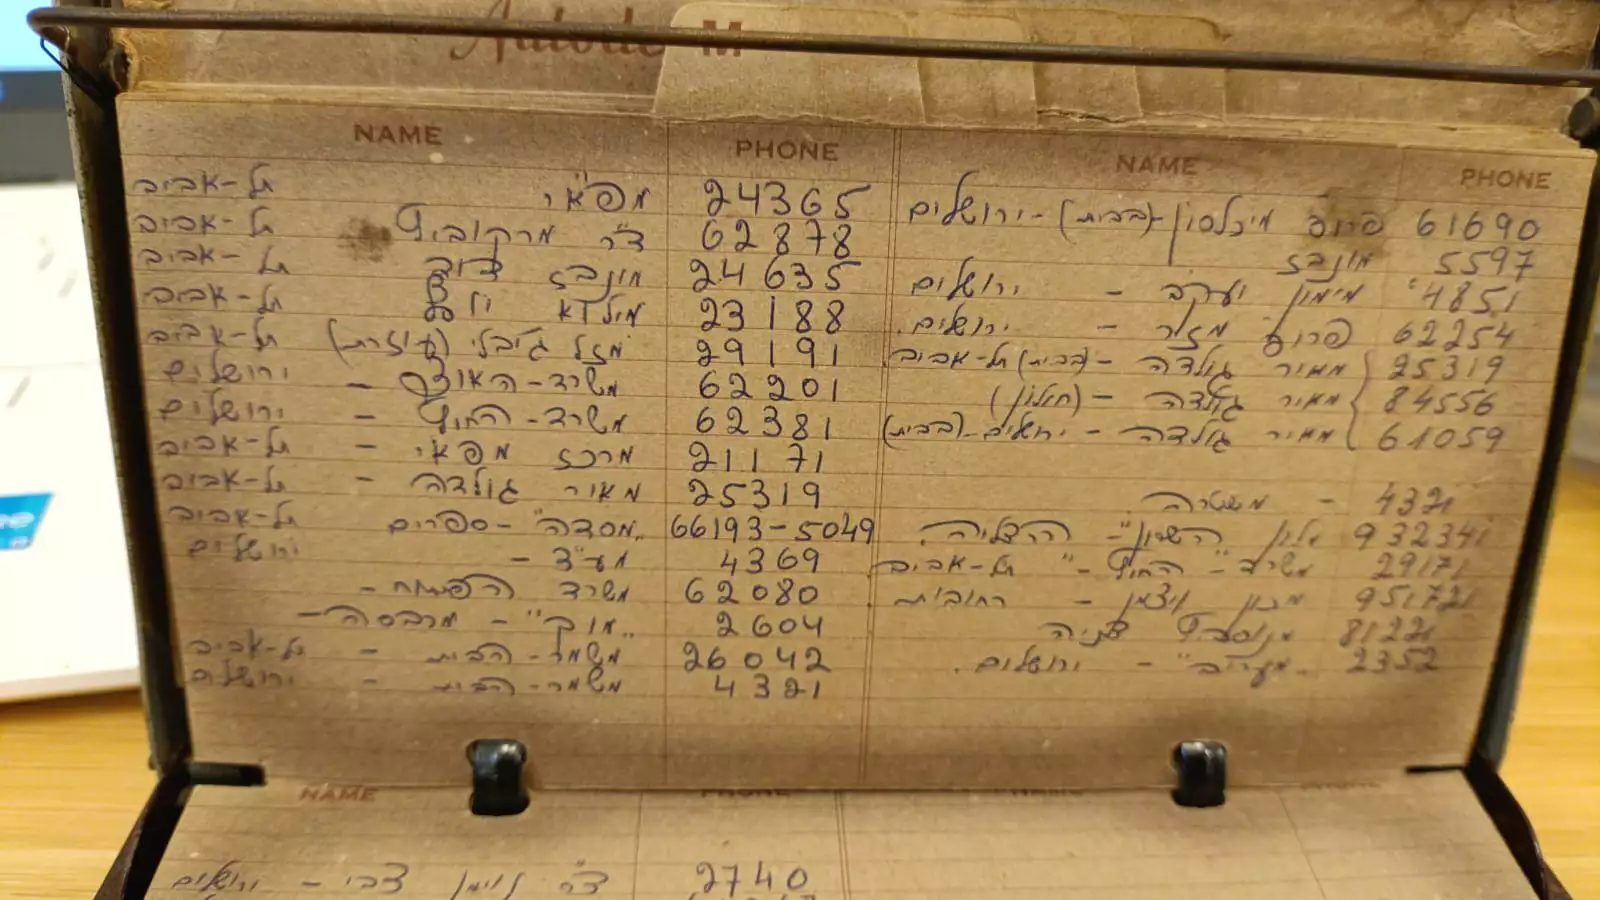 M
NAME PHONE
מפא"י תל-אביב 24365
ד"ר מרקוביץ תל-אביב 62878
תל-אביב 24635
תל-אביב 23188
מזל ג'יבלי (עוזרת) תל-אביב 29191
משרד-האוצר - ירושלים 62201
משרד-החוץ - ירושלים 62381
מרכז מפאי - תל-אביב 21171
מאיר גולדה - תל-אביב 25319
"מסדה" - ספרים תל-אביב 66193-5049
ירושלים 4369
משרד הפתוח - 62080
2604
משמר-הבית - תל-אביב 26042
משמר-הבית - ירושלים 4321
NAME PHONE
פרופ מיכלסון (בבית) - ירושלים 61690
מונבז 5597
מימון יעקב - ירושלים 4851
פרופ מזר - ירושלים 62254
מאיר גולדה - (בבית) תל-אביב 25319
מאיר גולדה - (חולון) 84556
מאיר גולדה - ירושלים - (בבית) 61059
משטרה - 4321
מלון "השרון" - הרצליה 932341
משרד - "החוץ" - תל-אביב 29171
מכון ויצמן - רחובות 951721
81221
"מעריב" - ירושלים 2352
NAME PHONE NAME PHONE
ד"ר נוימן צבי - ירושלים 2740